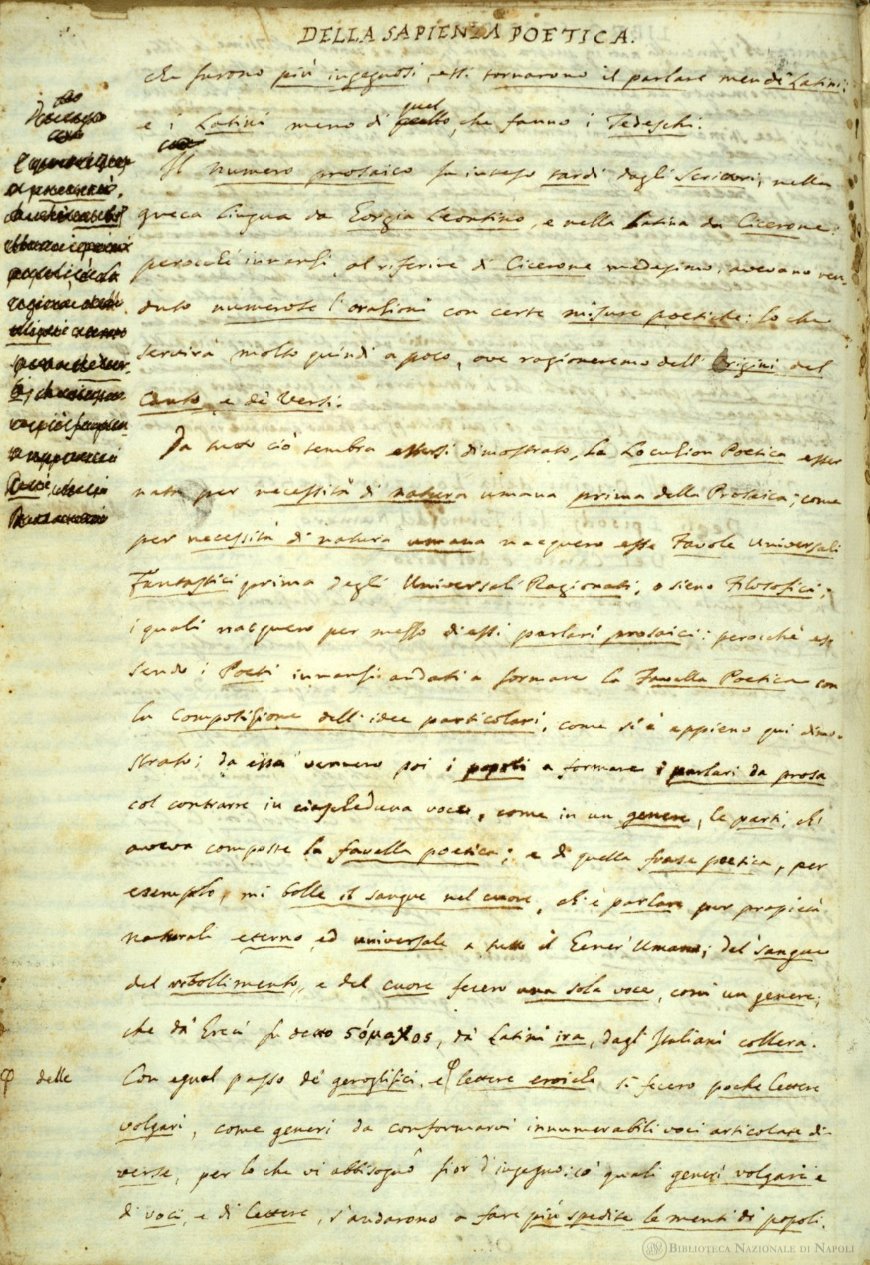 DELLA SAPIENZA POETICA.
che furono più ingegnosi, essi tornarono il parlare men de' Latini;
e i Latini meno di quel, che fanno i Tedeschi.
Il numero prosaico fu inteso tardi dagli Scrittori, nella
greca lingua da Gorgia Leontino, e nella Latina da Cicerone:
perocchè innanzi, al riferire di Cicerone medesimo, avevano ren-
duto numerose l'orazioni con certe misure poetiche: lo che
servirà molto quindi a poco, ove ragioneremo dell'Origini del
Canto, e de' Versi.
Da tutto ciò sembra essersi dimostrato, la Locuzion Poetica esser
nata per necessità di natura umana prima della Prosaica; come
per necessità di natura umana nacquero esse Favole Universali
Fantastici prima degli Universali Ragionati, o sieno Filosofici;
i quali nacquero per mezzo di essi parlari prosaici: perocchè es-
sendo i Poeti innanzi andati a formare la Favella Poetica con
la composizione dell'idee particolari, come si è appieno qui dimo-
strato; da essa vennero poi i popoli a formare i parlari da prosa
col contrarre in ciascheduna voce, come in un genere, le parti, ch'
aveva composte la favella poetica; e di quella frase poetica, per
esemplo, mi bolle il sangue nel cuore, ch'è parlare per propietà
naturale eterno ed universale a tutto il Gener' Umano; del sangue
del ribollimento, e del cuore fecero una sola voce, com'un genere;
che da' Greci fu detto ςόμαχος, da' Latini ira, dagl'Italiani collera.
φ delle
Con egual passo de' geroglifici, e φ lettere eroiche si fecero poche lettere
volgari, come generi da conformarvi innumerabili voci articolate di-
verse, per lo che vi abbisognò fior d'ingegno: co' quali generi volgari e
di voci, e di lettere, s'andarono a fare più spedite le menti de' popoli.
BIBLIOTECA NAZIONALE DI NAPOLI